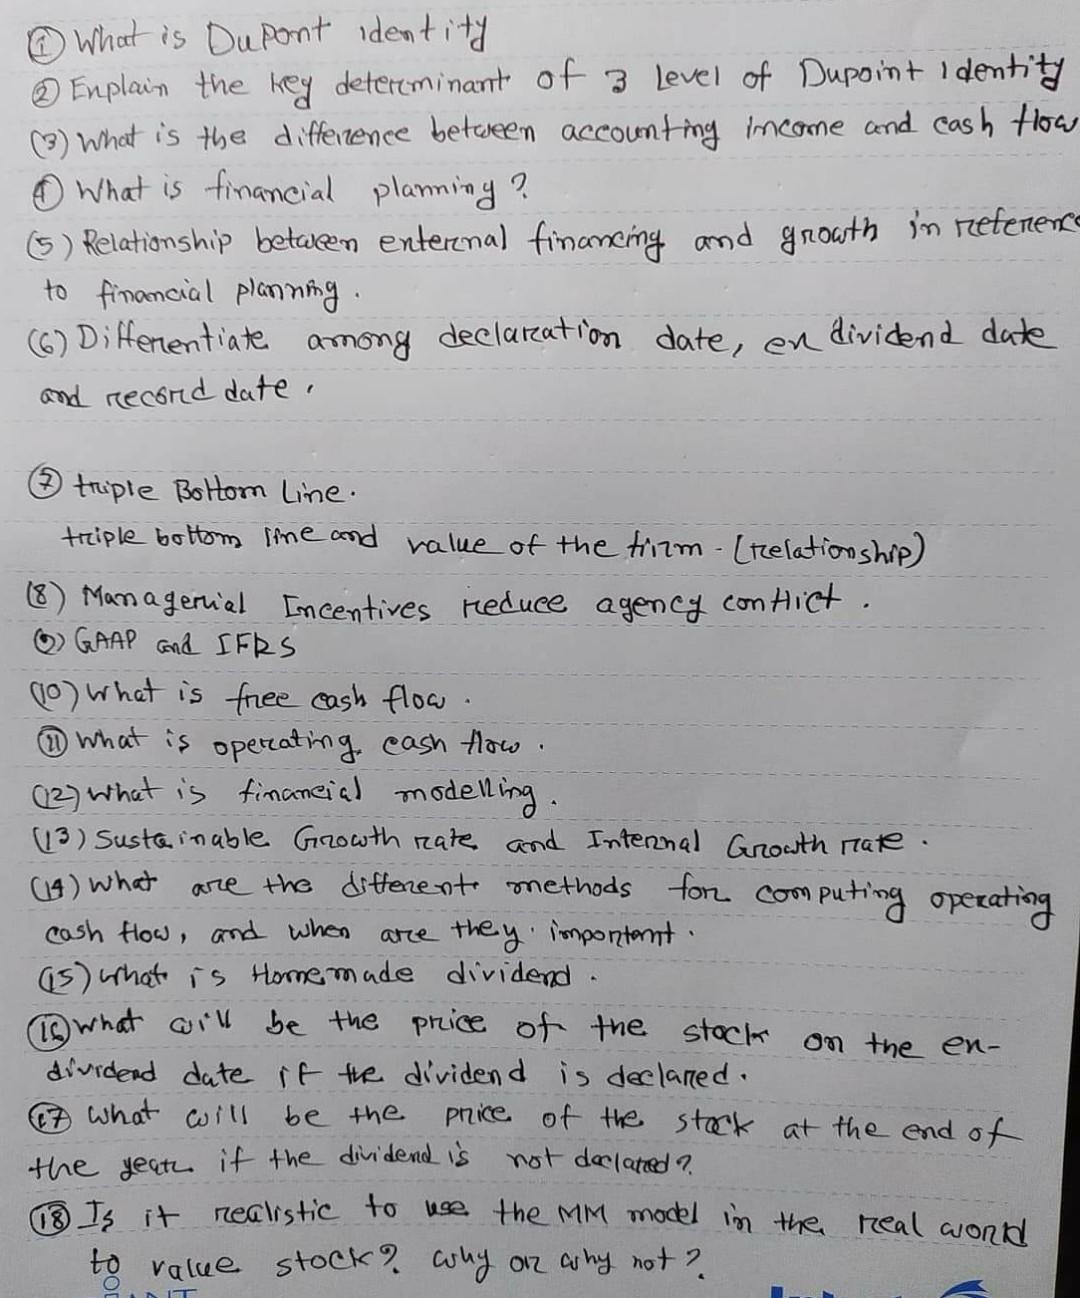 ① What is Dupont identity
② Explain the key determinant of 3 Level of Dupoint Identity
(3) What is the difference between accounting income and cash flow
④ What is financial planning?
(5) Relationship between external financing and growth in reference
to financial planning.
(6) Differentiate among declaration date, ex dividend date
and record date.
⑦ triple Bottom Line.
triple bottom line and value of the firm - (relationship)
(8) Managerial Incentives reduce agency conflict.
(9) GAAP and IFRS
(10) What is free cash flow.
⑪ What is operating cash flow.
(12) What is financial modelling.
(13) Sustainable Growth rate and Internal Growth rate.
(14) What are the different methods for computing operating
cash flow, and when are they important.
(15) What is Homemade dividend.
⑯ What will be the price of the stock on the ex-
dividend date if the dividend is declared.
⑰ What will be the price of the stock at the end of
the year if the dividend is not declared?
⑱ Is it realistic to use the MM model in the real world
to value stock? Why or why not?